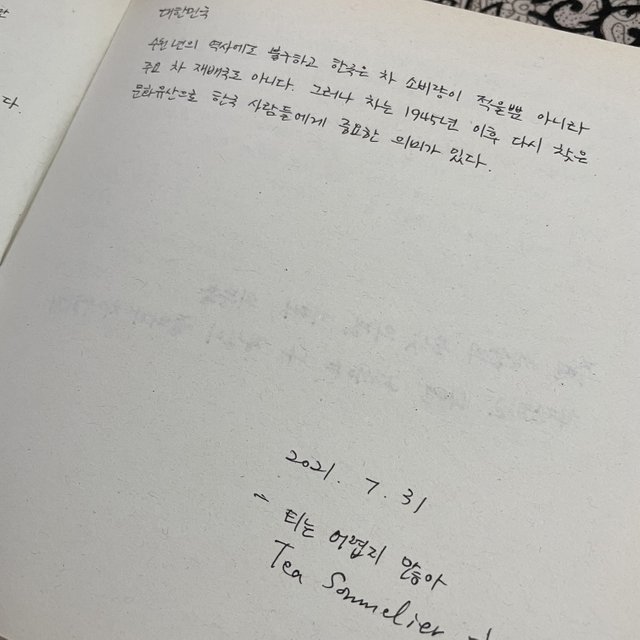 다.
대한민국
수천년의 역사에도 불구하고 한국은 차 소비량이 적을뿐 아니라
주요 차 재배국도 아니다. 그러나 차는 1945년 이후 다시 찾은
문화유산으로 한국 사람들에게 중요한 의미가 있다.
2021. 7. 31
티는 어렵지 않아
Tea Sommelier